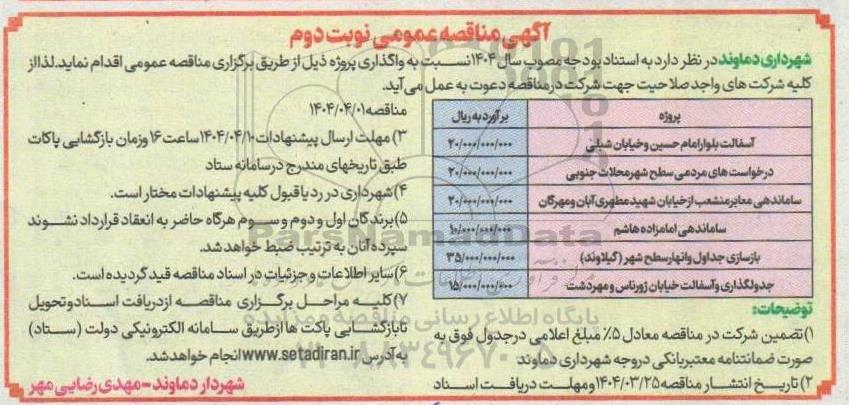 آگهی مناقصه عمومی نوبت دوم
شهرداری دماوند در نظر دارد به استناد بودجه مصوب سال ۱۴۰۴ نسبت به واگذاری پروژه ذیل از طریق برگزاری مناقصه عمومی اقدام نماید. لذا از
کلیه شرکت های واجد صلاحیت جهت شرکت در مناقصه دعوت به عمل می آید.
پروژه برآورد به ریال
آسفالت بلوار امام حسین و خیابان شبلی ۲۰/۰۰۰/۰۰۰/۰۰۰
درخواست های مردمی سطح شهر محلات جنوبی ۲۰/۰۰۰/۰۰۰/۰۰۰
ساماندهی معابر منشعب از خیابان شهید مطهری آبان و مهرگان ۲۰/۰۰۰/۰۰۰/۰۰۰
ساماندهی امامزاده هاشم ۱۰/۰۰۰/۰۰۰/۰۰۰
بازسازی جداول وانهار سطح شهر (گیلاوند) ۳۵/۰۰۰/۰۰۰/۰۰۰
جدولگذاری و آسفالت خیابان ژورناس و مهردشت ۱۵/۰۰۰/۰۰۰/۰۰۰
توضیحات:
۱) تضمین شرکت در مناقصه معادل ۵٪ مبلغ اعلامی در جدول فوق به
صورت ضمانتنامه معتبر بانکی در وجه شهرداری دماوند
۲) تاریخ انتشار مناقصه ۱۴۰۴/۰۳/۲۵ و مهلت دریافت اسناد
مناقصه ۱۴۰۴/۰۴/۰۱
۳) مهلت ارسال پیشنهادات ۱۴۰۴/۰۴/۱۰ ساعت ۱۶ و زمان بازگشایی پاکات
طبق تاریخهای مندرج در سامانه ستاد
۴) شهرداری در رد یا قبول کلیه پیشنهادات مختار است.
۵) برندگان اول و دوم و سوم هرگاه حاضر به انعقاد قرارداد نشوند
سپرده آنان به ترتیب ضبط خواهد شد.
۶) سایر اطلاعات و جزئیات در اسناد مناقصه قید گردیده است.
۷) کلیه مراحل برگزاری مناقصه از دریافت اسناد و تحویل
تا بازگشایی پاکت ها از طریق سامانه الکترونیکی دولت (ستاد)
به آدرس www.setadiran.ir انجام خواهد شد.
شهردار دماوند - مهدی رضایی مهر
ParsNamadData
پایگاه اطلاع رسانی مناقصه و مزایده